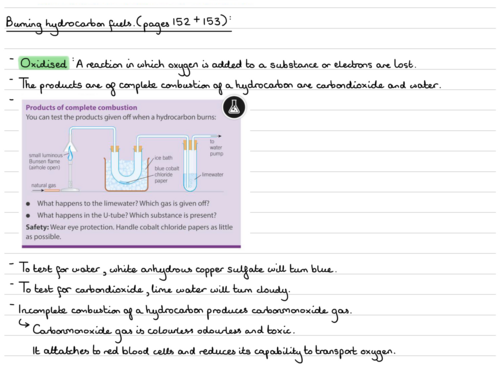 Burning hydrocarbon fuels. (pages 152 + 153):
- Oxidised: A reaction in which oxygen is added to a substance or electrons are lost.
- The products are of complete combustion of a hydrocarbon are carbondioxide and water.
-
Products of complete combustion
You can test the products given off when a hydrocarbon burns:
to water pump
small luminous
Bunsen flame
(whole open)
ice bath
blue cobalt
chloride
paper
limewater
natural gas
• What happens to the limewater? Which gas is given off?
• What happens in the U-tube? Which substance is present?
Safety: Wear eye protection. Handle cobalt chloride papers as little
as possible.
- To test for water, white anhydrous copper sulfate will turn blue.
- To test for carbondioxide, lime water will turn cloudy.
- Incomplete combustion of a hydrocarbon produces carbonmonoxide gas.
↳ Carbonmonoxide gas is colourless odourless and toxic.
It attatches to red blood cells and reduces its capability to transport oxygen.